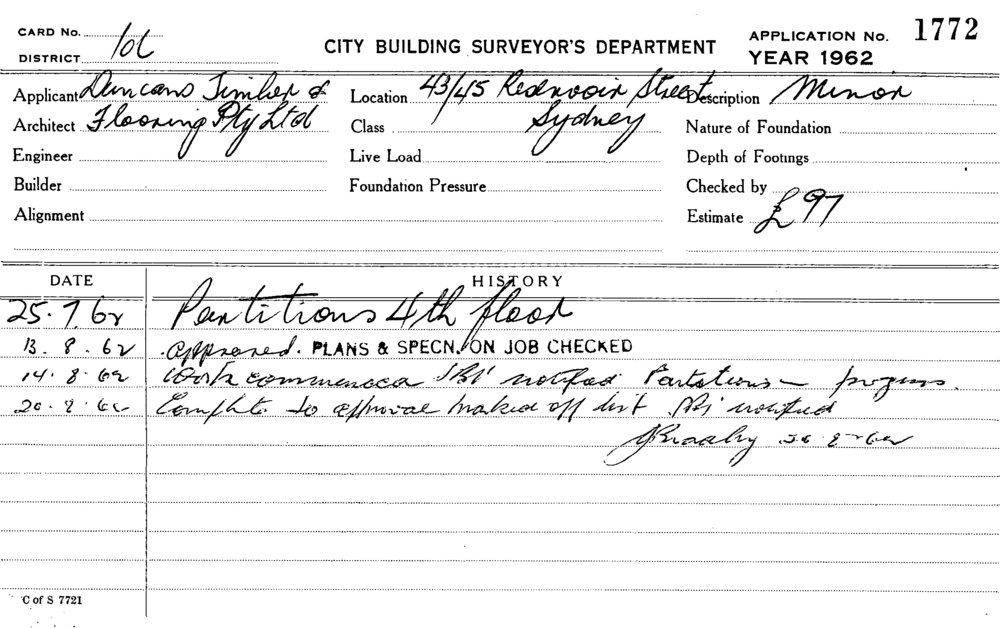 CARD No.
DISTRICT
CITY BUILDING SURVEYOR'S DEPARTMENT
APPLICATION No. 1772
YEAR 1962
Applicant Duncans Timber &
Architect Flooring Pty Ltd
Engineer
Builder
Alignment
Location 43/45 Reservoir Street
Class Sydney
Live Load
Foundation Pressure
Description Minor
Nature of Foundation
Depth of Footings
Checked by
Estimate £97
DATE HISTORY
25.7.62 Partitions 4th floor
13.8.62 approved. PLANS & SPECN. ON JOB CHECKED
14.8.62 Work commenced notified Partitions progress.
20.8.62 to approval marked off list notified
C of S 7721